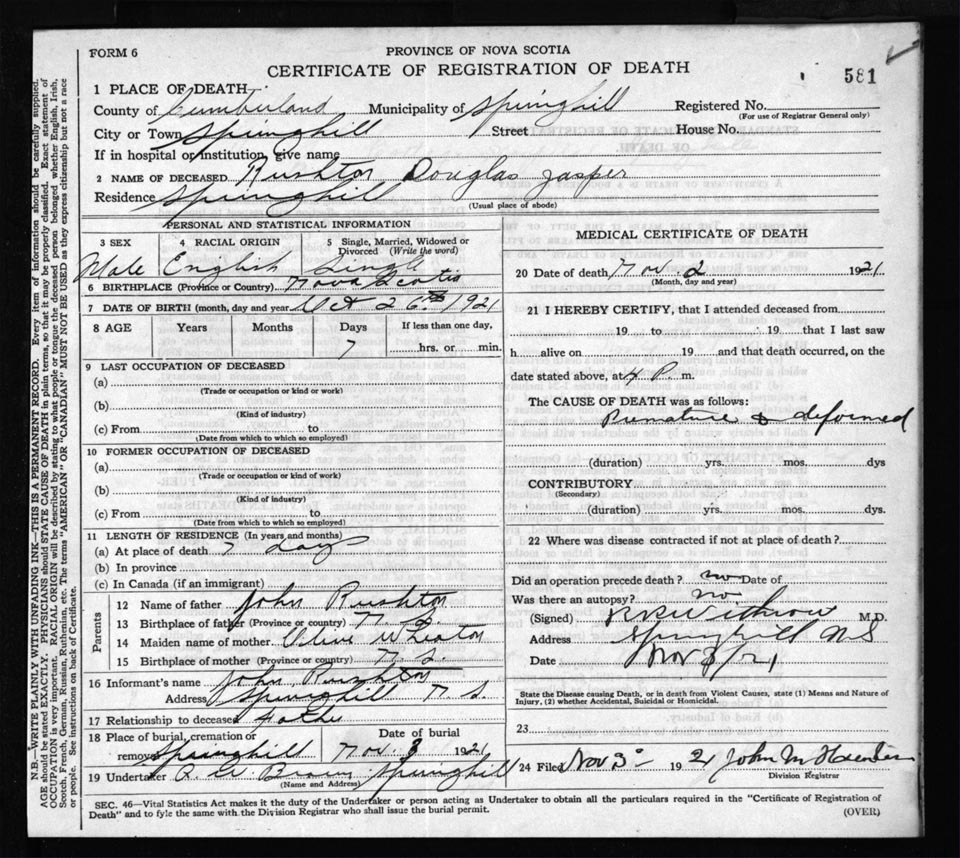 FORM 6
PROVINCE OF NOVA SCOTIA
CERTIFICATE OF REGISTRATION OF DEATH
581
1 PLACE OF DEATH
County of Cumberland Municipality of Springhill Registered No.
(For use of Registrar General only)
City or Town Springhill Street House No.
If in hospital or institution, give name
2 NAME OF DECEASED Rushton Douglas Jasper
Residence Springhill
(Usual place of abode)
PERSONAL AND STATISTICAL INFORMATION
3 SEX 4 RACIAL ORIGIN 5 Single, Married, Widowed or Divorced (Write the word)
Male English Single
6 BIRTHPLACE (Province or Country) Nova Scotia
7 DATE OF BIRTH (month, day and year) Oct 26th 1921
8 AGE Years Months Days If less than one day,
7 hrs. or min.
9 LAST OCCUPATION OF DECEASED
(a)
(Trade or occupation or kind or work)
(b)
(Kind of industry)
(c) From to
(Date from which to which so employed)
10 FORMER OCCUPATION OF DECEASED
(a)
(Trade or occupation or kind or work)
(b)
(Kind of industry)
(c) From to
(Date from which to which so employed)
11 LENGTH OF RESIDENCE (In years and months)
(a) At place of death 7 days
(b) In province
(c) In Canada (if an immigrant)
Parents
12 Name of father John Rushton
13 Birthplace of father (Province or country) N. S.
14 Maiden name of mother Olive Wheaton
15 Birthplace of mother (Province or country) N. S.
16 Informant's name John Rushton
Address Springhill N. S.
17 Relationship to deceased Father
18 Place of burial, cremation or removal Springhill Date of burial Nov. 3 1921
19 Undertaker Brown Springhill
(Name and Address)
MEDICAL CERTIFICATE OF DEATH
20 Date of death Nov 2 1921
(Month, day and year)
21 I HEREBY CERTIFY, that I attended deceased from
19 to 19 that I last saw
h alive on 19 and that death occurred, on the
date stated above, at 4 P. m.
The CAUSE OF DEATH was as follows:
Premature & deformed
(duration) yrs. mos. dys
CONTRIBUTORY
(Secondary)
(duration) yrs. mos. dys.
22 Where was disease contracted if not at place of death?
Did an operation precede death? no Date of
Was there an autopsy? no
(Signed) Withrow M.D.
Address Springhill NS
Date Nov 3/21
State the Disease causing Death, or in death from Violent Causes, state (1) Means and Nature of
Injury, (2) whether Accidental, Suicidal or Homicidal.
23
24 Filed Nov 3 1921 John M
Division Registrar
SEC. 46—Vital Statistics Act makes it the duty of the Undertaker or person acting as Undertaker to obtain all the particulars required in the "Certificate of Registration of
Death" and to fyle the same with the Division Registrar who shall issue the burial permit.
(OVER)
N.B.—WRITE PLAINLY WITH UNFADING INK—THIS IS A PERMANENT RECORD. Every item of information should be carefully supplied.
AGE should be stated EXACTLY. PHYSICIANS should STATE CAUSE OF DEATH in plain terms, so that it may be properly classified. Exact statement of
OCCUPATION is very important. RACIAL ORIGIN will be described by stating to what people or tongue the deceased person belonged whether English, Irish,
Scotch, French, German, Russian, Ruthenian, etc. The terms "AMERICAN" OR "CANADIAN" MUST NOT BE USED as they express citizenship but not a race
or people. See instructions on back of Certificate.